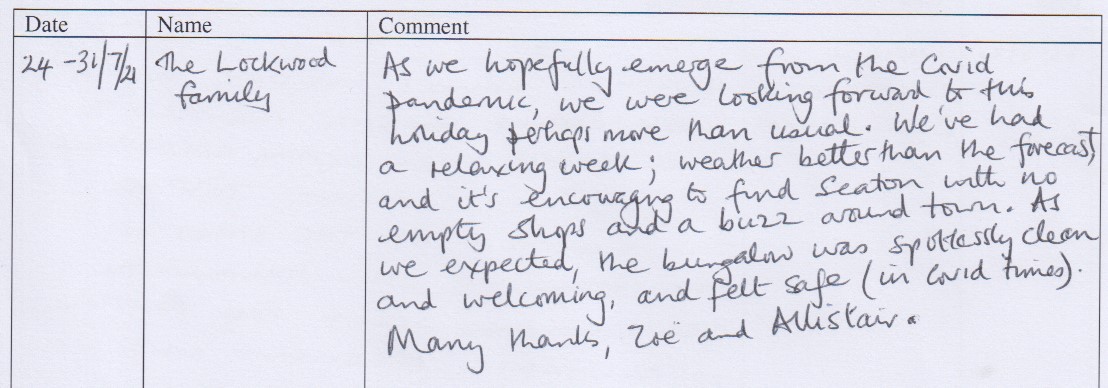 Date Name Comment
24-31/7/21 The Lockwood family
As we hopefully emerge from the Covid
pandemic, we were looking forward to this
holiday perhaps more than usual. We've had
a relaxing week; weather better than the forecast,
and it's encouraging to find Seaton with no
empty shops and a buzz around town. As
we expected, the bungalow was spotlessly clean
and welcoming, and felt safe (in Covid times).
Many thanks, Zoë and Allistair.